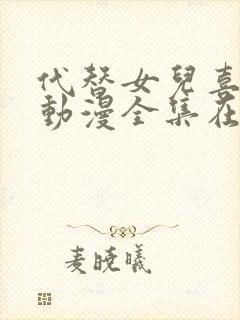 代替女兒喜
動漫全集在
麦曉曦